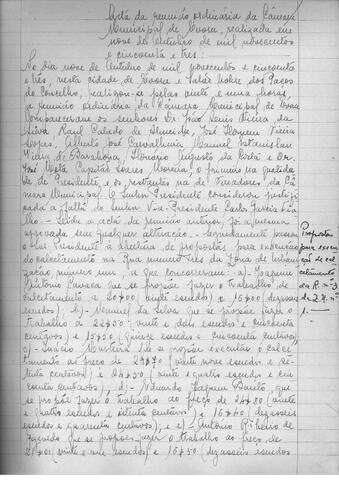 Acta da reunião ordinária da Câmara
Municipal de realizada em
nove de Outubro de mil novecentos
e cincoenta e três:
No dia nove de Outubro de mil novecentos e cincoenta
e três, nesta cidade de e Salas nobre dos Paços
do Concelho, realizou-se pelas vinte e uma horas,
a reunião ordinária da Câmara Municipal de
Compareceram os senhores Dr. João Luís Vieira da
Silva Raul de Almeida, José Vieira
Lopes, Alberto José Carvalheira Manuel Estanislau
Vieira de Barahona, Augusto da Costa e Dr.
José Mota Capitão Soares Moreira, o primeiro na qualidade
de Presidente e os restantes na de Vereadores da Câ-
mara Municipal. O senhor Presidente considerou justifi-
cada a falta do senhor Vice-Presidente Carlos
Lida a acta da reunião anterior, foi a mesma
aprovada sem qualquer alteração. Seguidamente passou
o snr. Presidente à abertura de propostas para execução
do calcetamento na Rua numero três da Zona de Urbani-
zação numero um, a que concorreram: a)
António que se propõe fazer o trabalho de
calcetamento a 20$00 (vinte escudos) e 16$00 (dezasseis
escudos); b) Manuel da Silva que se propõe fazer o
trabalho a 22$50 (vinte e dois escudos e cincoenta
centavos) e 15$50 (quinze escudos e cincoenta centavos);
c) Inácio que se propõe executar o calce-
tamento ao preço de (vinte nove escudos e
centavos) e 24$50 (vinte e quatro escudos e cin-
coenta centavos); d) Eduardo que
se propõe fazer o trabalho ao preço de (vinte
e quatro escudos e centavos) e 16$40 (dezasseis
escudos e quarenta centavos); e e) António Ribeiro de
que se propõe fazer o trabalho ao preço de
21$00 (vinte e um escudos) e 16$50 (dezasseis escudos
Propostas
para execu-
ção de cal-
cetamento
da R. nº 3
da Z. U. nº
1.